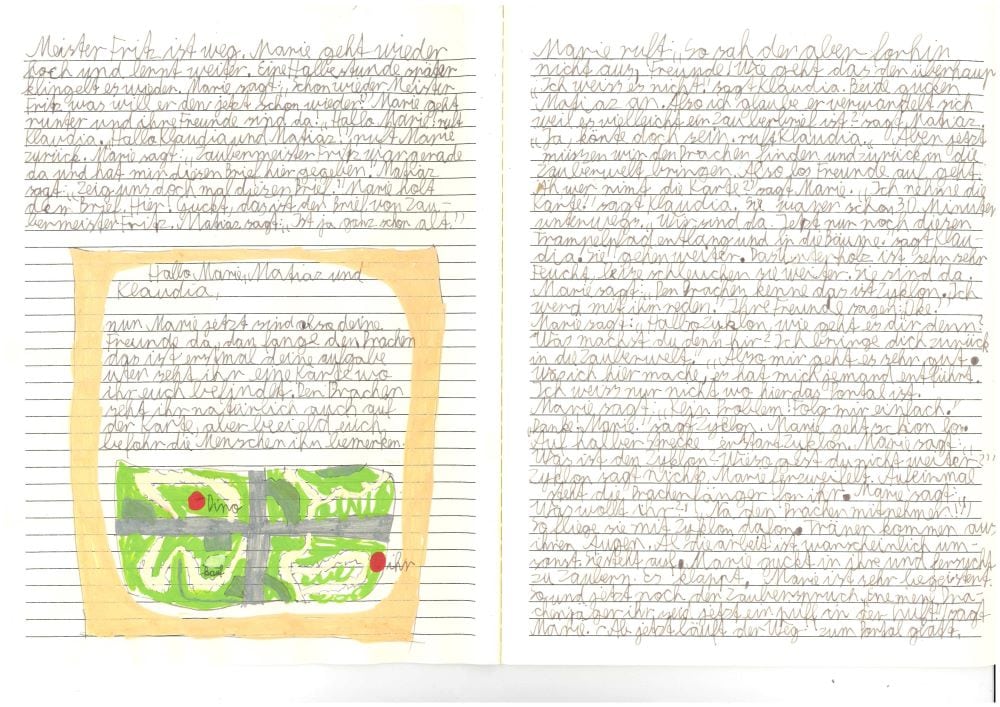 Meister Fritz ist weg. Marie geht wieder
hoch und lernt weiter. Eine Halbestunde später
klingelt es wieder. Marie sagt: „schon wieder Meister
Fritz was will er den jetzt schon wieder." Marie geht
runter und ihre Freunde sind da. „Hallo Marie, ruft
Klaudia. „Hallo Klaudia und Matiaz", ruft Marie
zurück. Marie sagt: „Zaubermeister Fritz war gerade
da und hat mir diesen Brief hier gegeben. Matiaz
sagt: „Zeig uns doch mal diesen Brief." Marie holt
den Brief. „Hier! Guckt, das ist der Brief von Zau-
bermeister Fritz. Matiaz sagt: „Ist ja ganz schön alt."
Hallo Marie, Matiaz und
Klaudia,
nun Marie jetzt sind also deine
Freunde da, dan fange den Drachen
das ist erstmal deine aufgabe
unter seht ihr eine Karte wo
ihr euch befindet. Den Drachen
seht ihr natürlich auch auf
der Karte, aber beeield euch,
befohr die Menschen ihn bemerken.
Dino
ihr
Marie ruft: „So sah der aber forhin
nicht aus, Freunde! Wie geht das den überhaup
„Ich weiss es nicht" sagt Klaudia. Beide gucken
Matiaz an. „Also ich glaube er verwandelt sich
weil es vielleicht ein Zauberbrief ist?" sagt Matiaz.
„Ja könte doch sein. ruft Klaudia. „Aber jetzt
müssen wir den Drachen finden und zurück in die
Zauberwelt bringen. Also los Freunde auf geht.
Ah wer nimt die Karte?" sagt Marie. „Ich nehme die
Karte!" sagt Klaudia. Sie waren schon 30 Minuten
unterwegs. „Wir sind da. Jetzt nur noch diesen
Trampelpfad entlang und in die Bäume. sagt Klau-
dia. Sie gehen weiter. Das unterholz ist sehr sehr
Feucht. Leise schleuchen sie weiter. Sie sind da.
Marie sagt: „Den Drachen kenne das ist Zyklon. Ich
werd mit ihm reden." Ihre Freunde sagen: „Oke."
Marie sagt: „Hallo Zyklon, wie geht es dir denn?
Was machst du denn hir? Ich bringe dich zurück
in die Zauberwelt." „Also mir geht es sehr gut.
Was ich hier mache, es hat mich jemand entführt.
Ich weiss nur nicht wo hier das Portal ist.
Marie sagt: „Kein Problem folg mir einfach."
„Danke Marie." sagt Zyklon. Marie geht schon for.
Auf halber strecke erstart Zyklon. Marie sagt:
„Was ist den Zyklon? Wieso gest du nicht weiter???
Zyklon sagt nichts. Marie ferzweifelt. Aufeinmal
steht die Drachenfänger for ihr. Marie sagt: „
Was wollt ihr!" „Na den Drachen mitnehmen!!!"
So fliege sie mit Zyklon dafon. Tränen kommen aus
ihren Augen. All die arbeit ist warscheinlich um-
sonst. Sie steht auf. Marie guckt in ihre und fersucht
zu Zaubern. Es klappt. Marie ist sehr begeistert.
So und jetzt noch den Zauberspruch. Ene mene Dra-
chenjäger ihr seid jetzt ein puff in der luft!" sagt
Marie. Ab jetzt läuft der Weg zum Portal glatt.